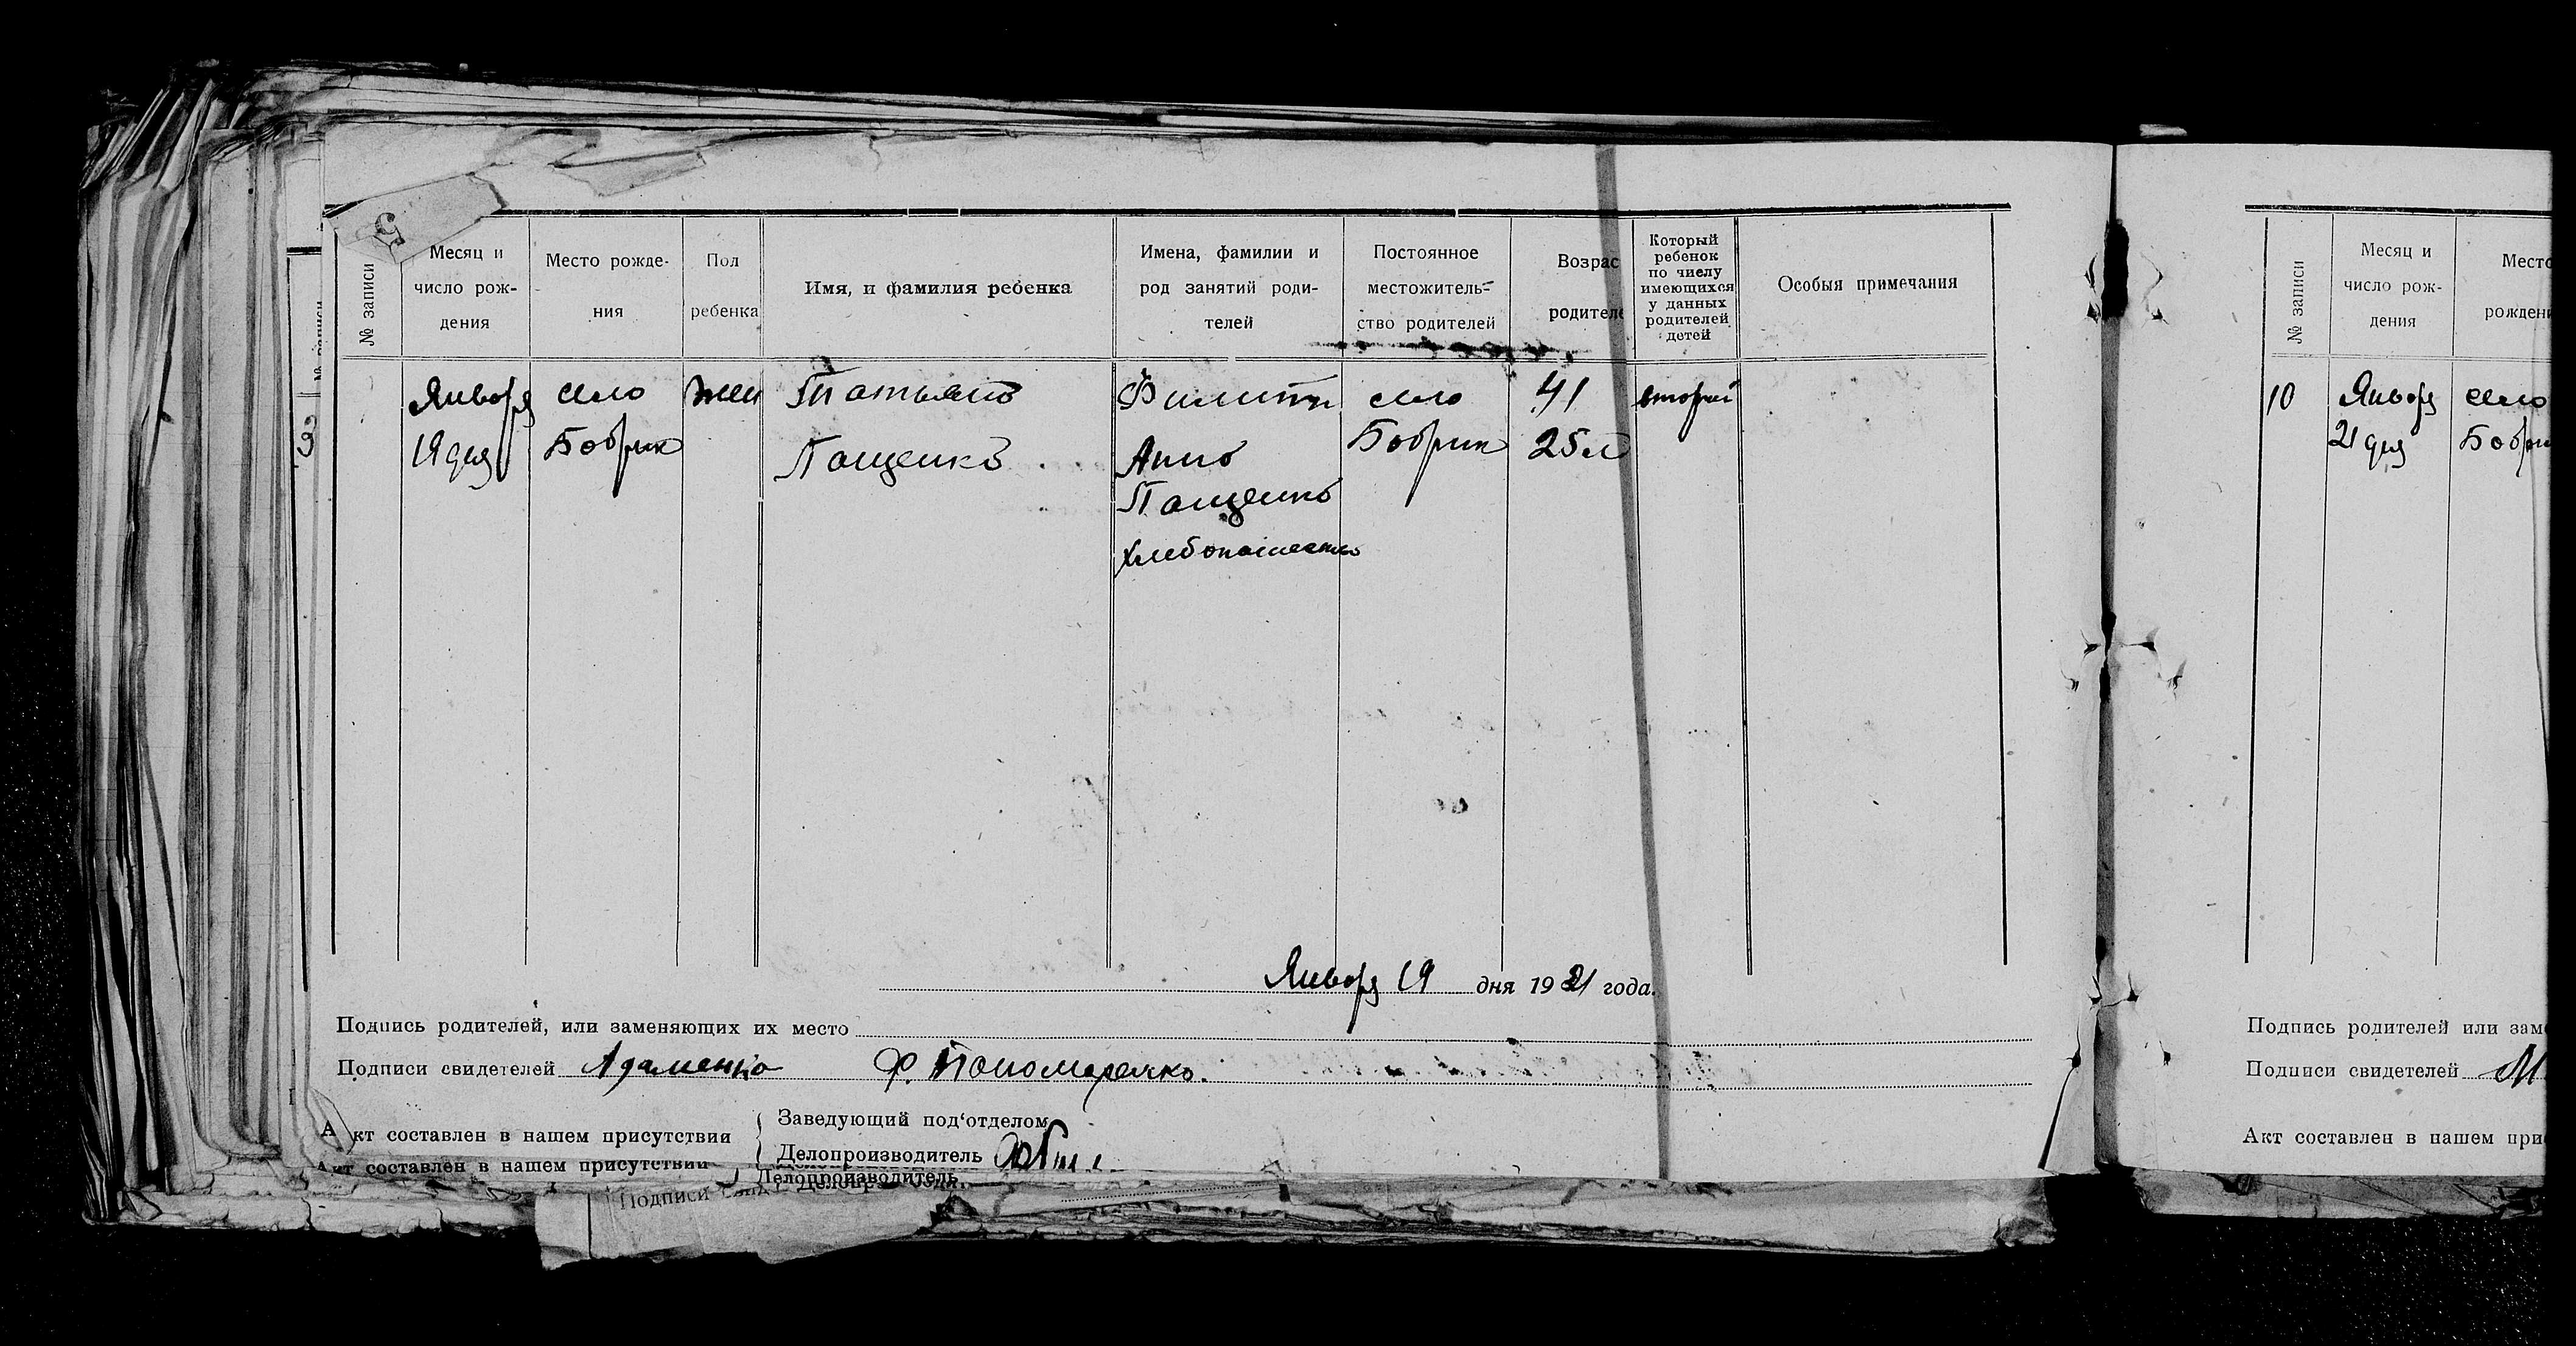 5
№ записи
Месяц и
число рож-
дения
Место рожде-
ния
Пол
ребенка
Имя, и фамилия ребенка
Имена, фамилии и
род занятий роди-
телей
Постоянное
местожитель-
ство родителей
Возрас
родителе
Который
ребенок
по числу
имеющихся
у данных
родителей
детей
Особыя примечания
Января
19 дня
село
Бобрик
жен
Татьяна
Пащенко
Филипп
Анна
Пащенко
хлебопашество
село
Бобрик
41
25 л
второй
Января 19 дня 1921 года.
Подпись родителей, или заменяющих их место
Подписи свидетелей Адаменко Ф. Пономаренко.
Акт составлен в нашем присутствии
Заведующий под'отделом
Делопроизводитель
Акт составлен в нашем присутствии
Делопроизводитель
Подписи
№ записи
Месяц и
число рож-
дения
Место
рождени
10
Января
21 дня
село
Бобри
Подпись родителей или зам
Подписи свидетелей М
Акт составлен в нашем при